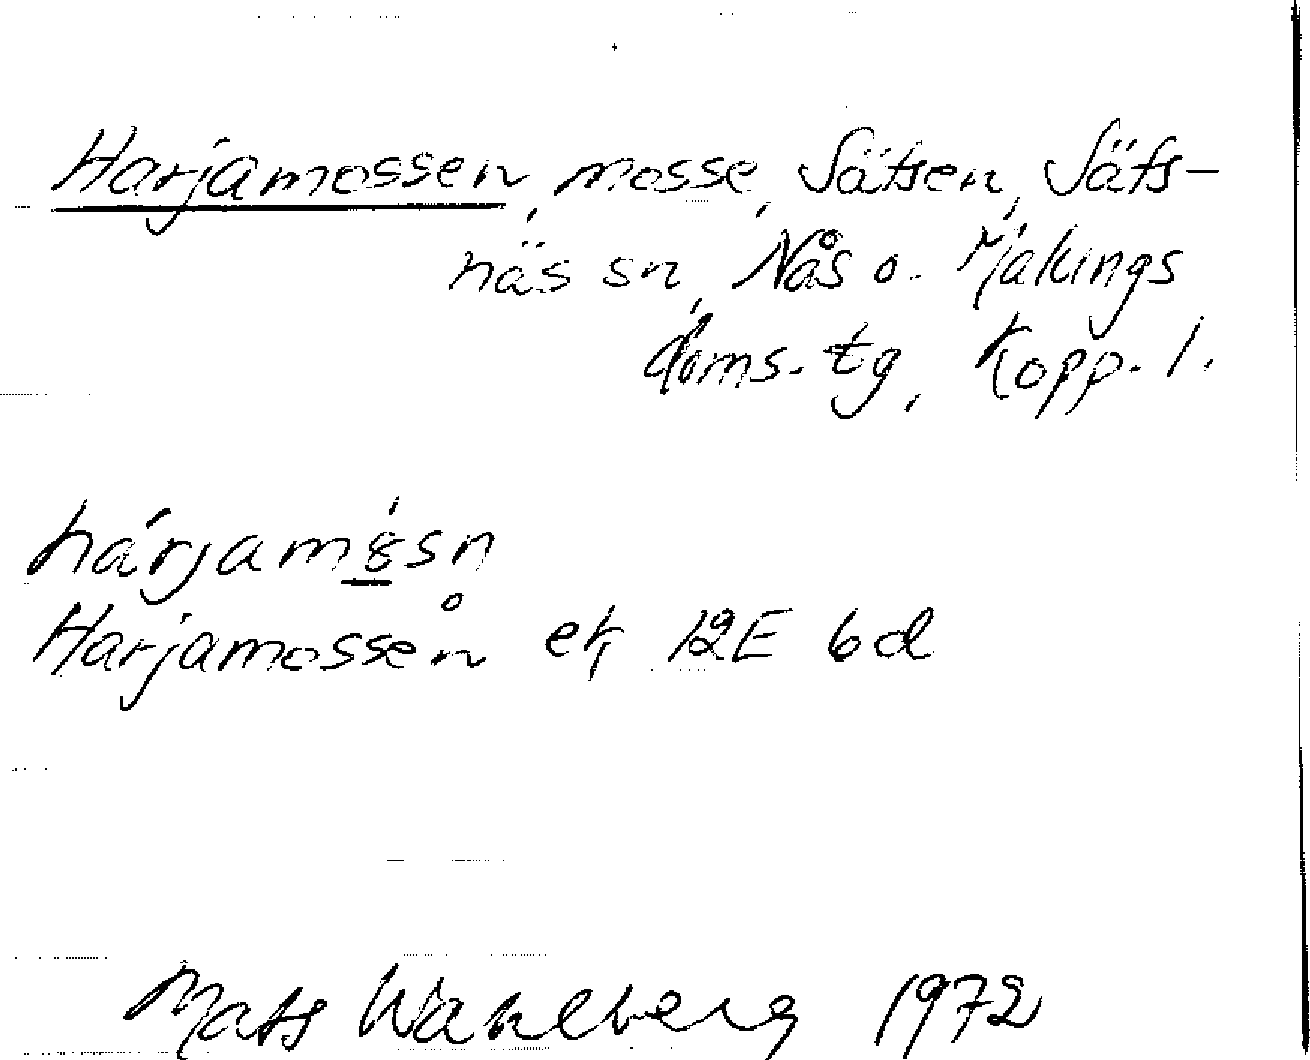 Harjamossen, mosse, Sätsen, Säfs-
näs sn, Nås o. Malungs
doms. tg, Kopp. l.
Harjamossen ek 12E 6d
Mats Wahlberg 1972